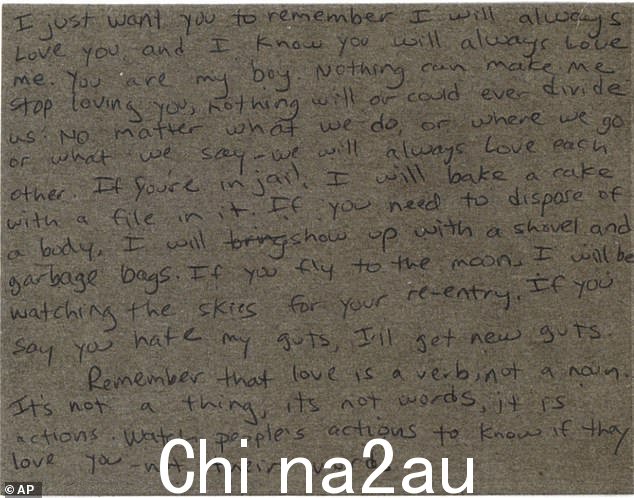 I just want you to remember I will always
Love you, and I know you will always Love
me. You are my boy. Nothing can make me
stop loving you, nothing will or could ever divide
us. No matter what we do, or where we go
or what we say - we will always Love each
other. If you're in jail, I will bake a cake
with a file in it. If you need to dispose of
a body, I will bring show up with a shovel and
garbage bags. If you fly to the moon, I will be
watching the skies for your re-entry. If you
say you hate my guts, I'll get new guts.
Remember that love is a verb, not a noun.
It's not a thing, its not words, it is
actions. Watch people's actions to know if they
love you - not their words.
China2au
© AP